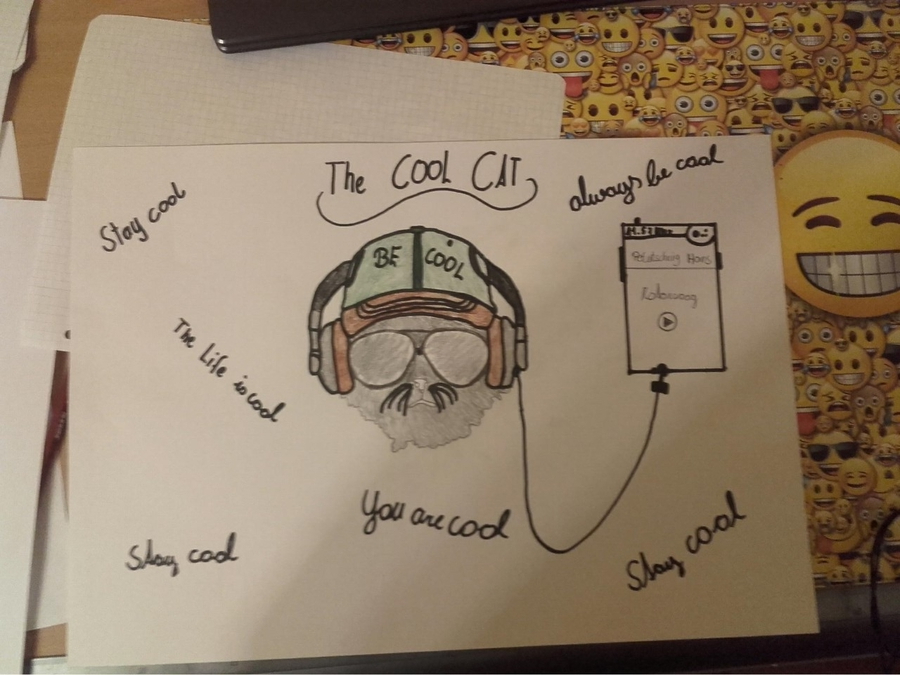 The COOL CAT
always be cool
Stay cool
BE COOL
Hans
The Life is cool
You are cool
Stay cool
Stay cool